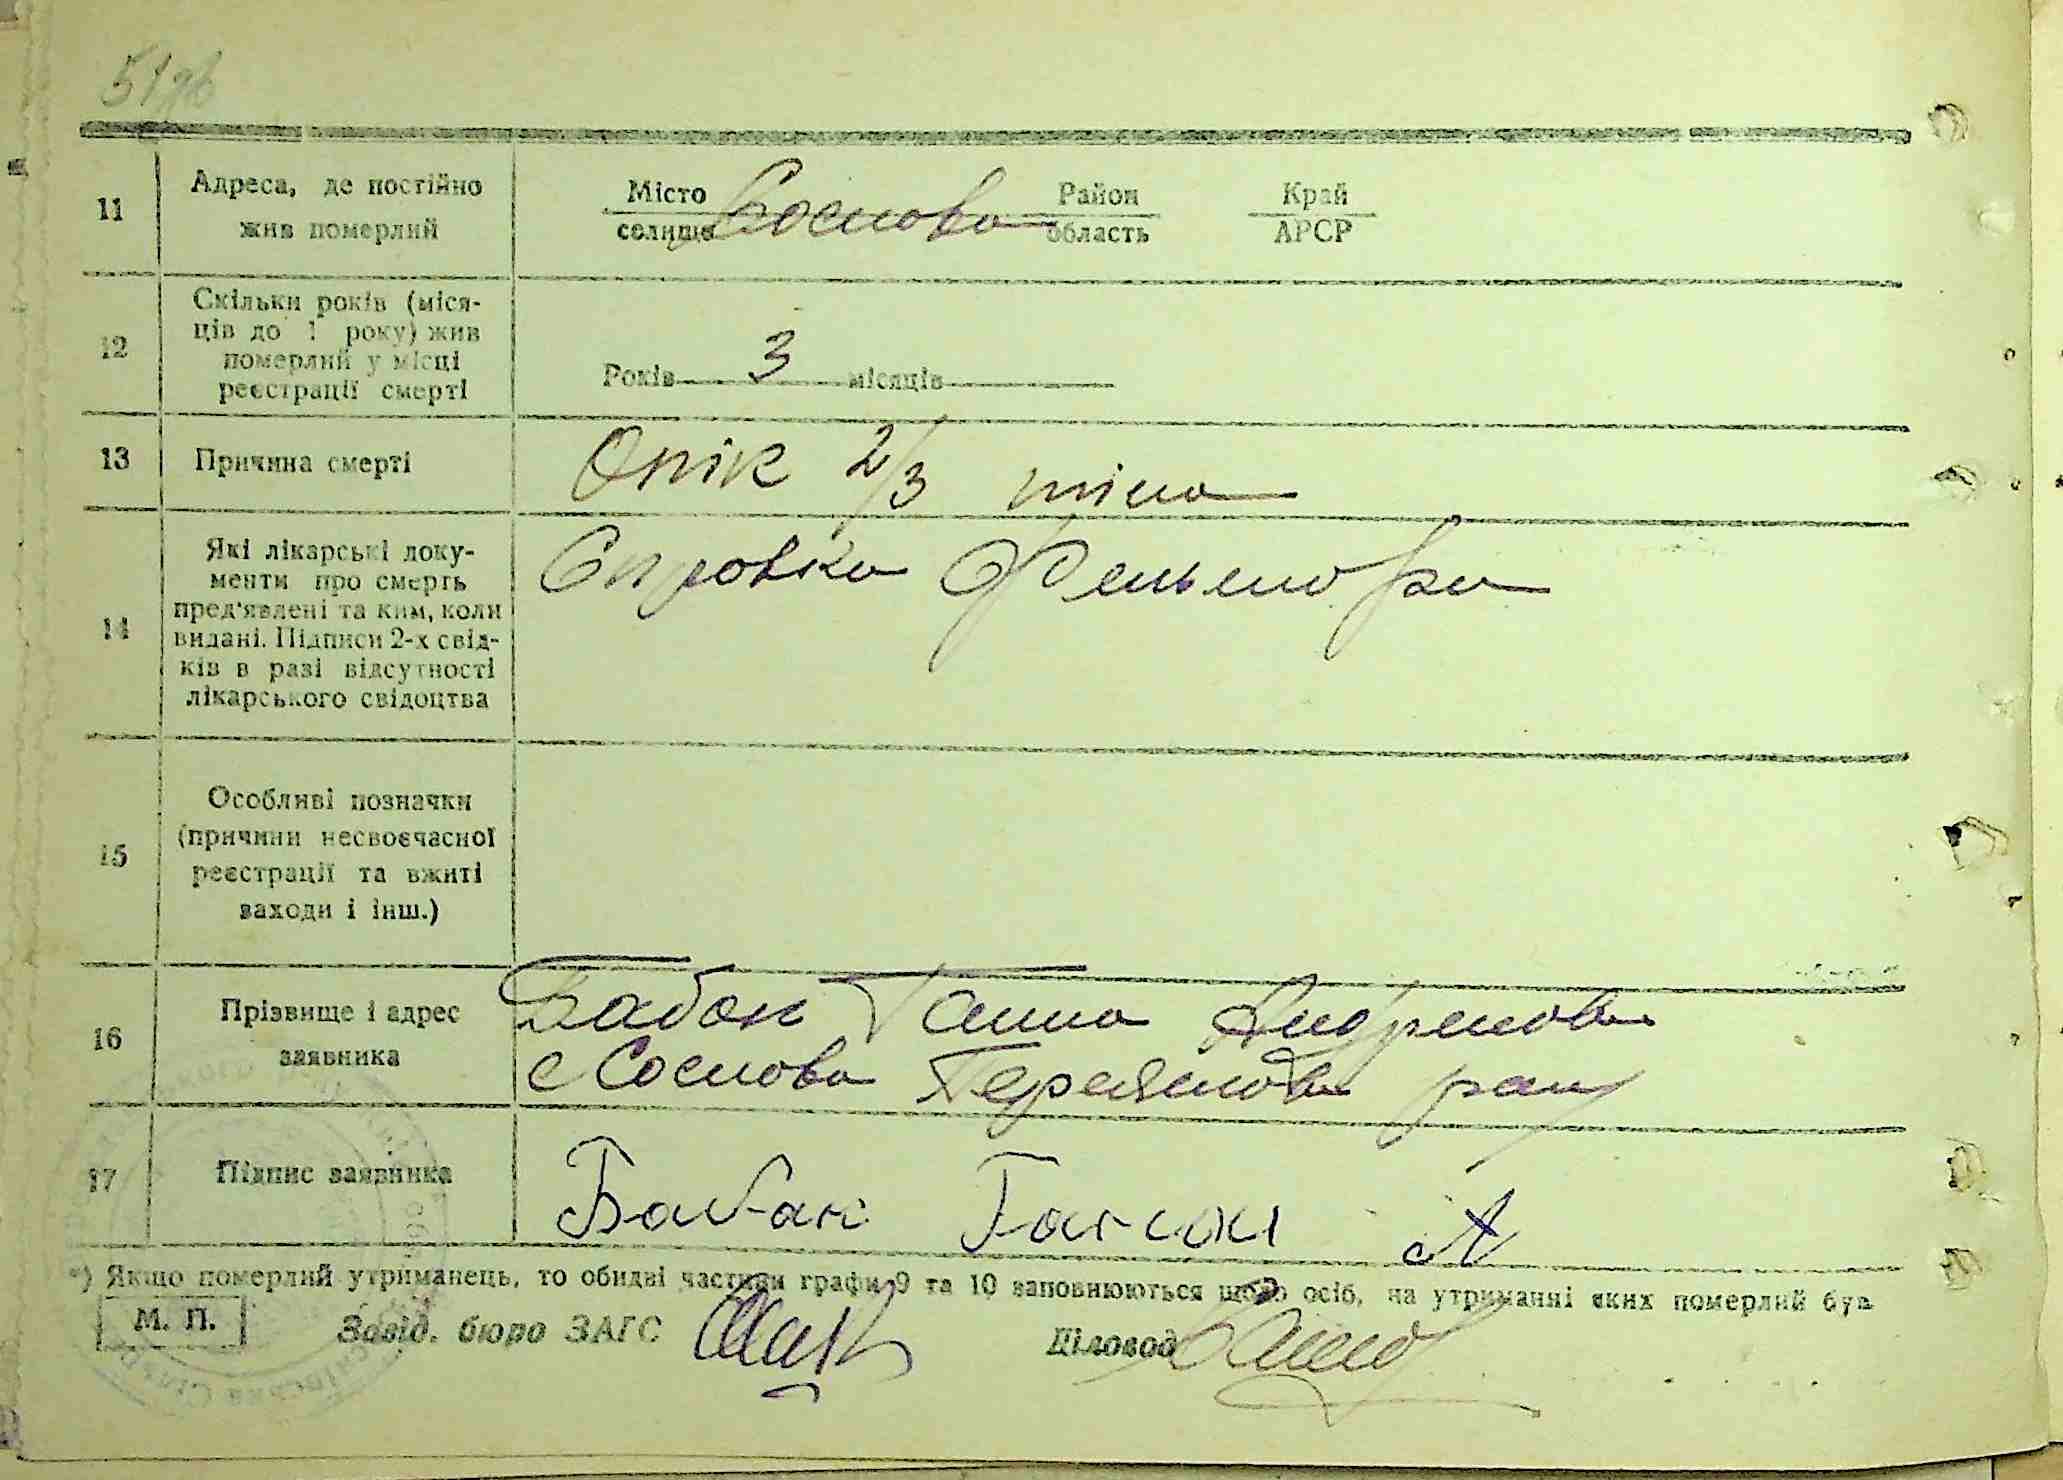 51зв
11 Адреса, де постійно жив померлий
Місто селище Соснова Район область Край АРСР
12 Скільки років (міся-
ців до 1 року) жив
померлий у місці
реєстрації смерті
Років 3 місяців
13 Причина смерті Опік 2/3 тіла
14 Які лікарські доку-
менти про смерть
пред'явлені та ким, коли
видані. Підписи 2-х свід-
ків в разі відсутності
лікарського свідоцтва
Справка Фельшора
15 Особливі позначки
(причини несвоєчасної
реєстрації та вжиті
заходи і інш.)
16 Прізвище і адрес
заявника
Бабак Ганна Андреевна
с Соснова Переяслов
17 Підпис заявника Бабак Ганна А
*) Якщо померлий утриманець, то обидві частини графи 9 та 10 заповнюються щодо осіб, на утриманні яких померлий був
М. П. Завід. бюро ЗАГС Діловод